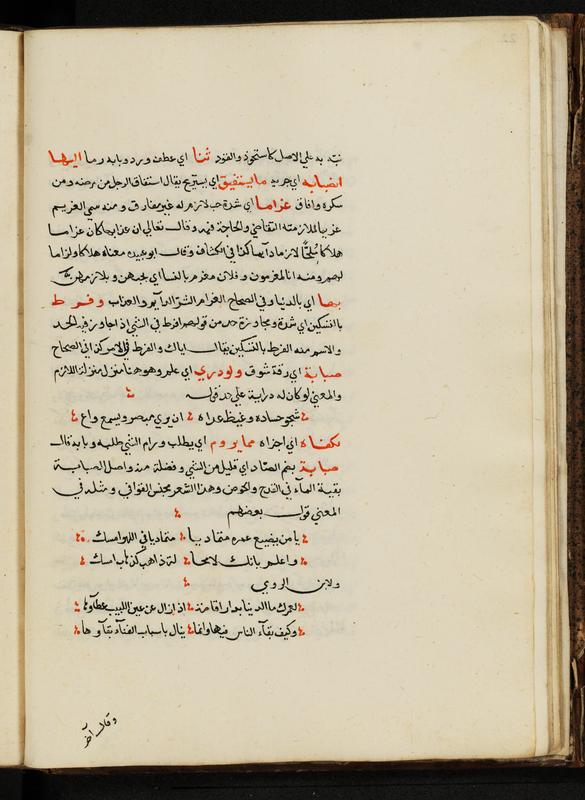 نبّه به علي الاصل كاستحوذ والقود ثنا اي عطف ورد وبابه رما اليها
انصبابه اي جريه ما يستفيق اي يستريح يقال استفاق الرجل من مرضه ومن
سكره وافاق غراما اي شدة حب لازم له غير مفارق ومنه سمي الغريم
غريما لملازمته التقاضي والحاحة فيه وقال تعالي ان عذابها كان غراما
هلاكا مُلِحًّا لازما دايما كذا في الكشاف وقال ابو عبيده معناه هلاكا ولزاما
لهم ومنه انا لمغرمون وفلان مغرم بالنسا اي يحبهن ويلازمهن
بها اي بالدنيا وفي الصحاح الغرام الشر الدايم والعذاب وفرط
باالتسكين اي شدة ومجاوزة حد من قولهم افرط في الشي اذا جاوز فيه الحد
والاسم منه الفرط بالتسكين يقال اياك والفرط في الامر كذا في الصحاح
صبابة اي رقة شوق ولو دري اي علم وهو هنا منزل منزلة اللازم
والمعني لو كان له دراية علي حد قوله
شجو حساده وغيظ عداه ان يري مبصر ويسمع واع
لكفاه اي اجزاه مما يروم اي يطلب ورام الشي طلبه وبابه قال
صبابة بضم الصاد اي قليل من الشي وفضلة منه واصل الصبابة
بقية المآء في القدح والحوض وهذا الشعر مجنس القوافي ومثله في
المعني قول بعضهم
يا من يضيع عمره متماديا متماديا في اللهو امسك
واعلم بانك لا محا لة ذاهب كذهاب امسك
ولابن الرومي
لعمرك ما الدنيا بدار اقامة اذا زال عن عين اللبيب غطآوها
وكيف بقآء الناس فيها وانما ينال باسباب الفنآء بقآوها
وقال آخر